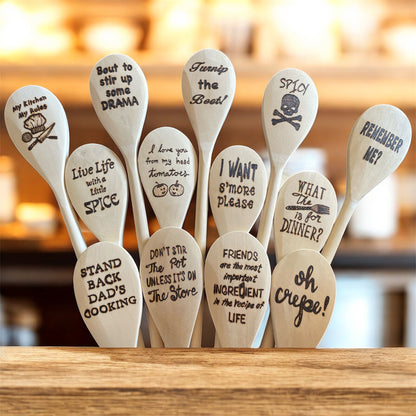 My Kitchen
My Rules
Bout to
stir up
some
DRAMA
Turnip
the
Beet!
SPICY
REMEMBER
ME?
Live Life
with a
Little
SPICE
I love you
from my head
tomatoes
I WANT
S'more
please
WHAT
THE
IS for
DINNER?
STAND
BACK
DAD'S
COOKING
DON'T STIR
The Pot
UNLESS ITS ON
The Stove
FRIENDS
are the most
important
INGREDIENT
in the recipe of
LIFE
oh
crepe!